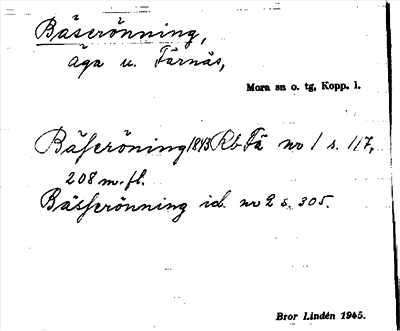 Bäserönning,
äga u. Färnäs,
Mora sn o. tg, Kopp. l.
Bässeröning 1843 Rb Fä nr 1 s. 117,
208 m. fl.
Bässerönning id. nr 2 s. 305.
Bror Lindén 1945.